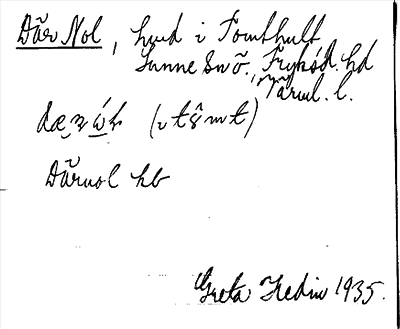 Där Nol, hmd i Tomthult
Sunne sn, Fryksd. hd
Värml. l.
Därnol hb
Greta Hedin 1935.